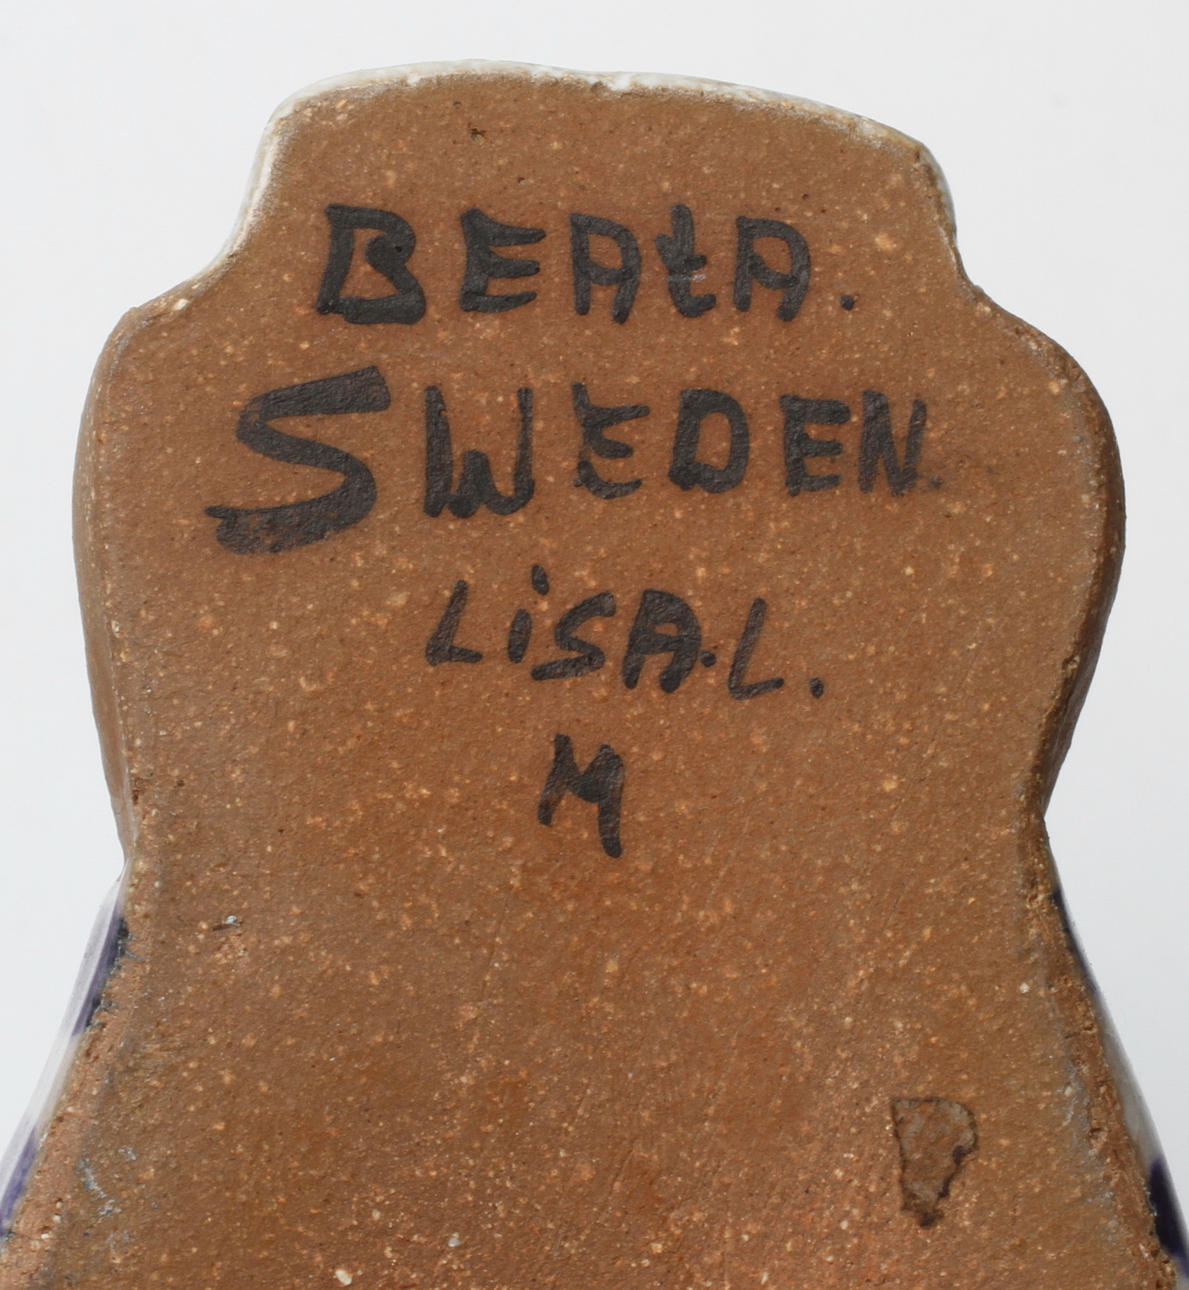 BEAtA.
SWEDEN.
LiSA.L.
M